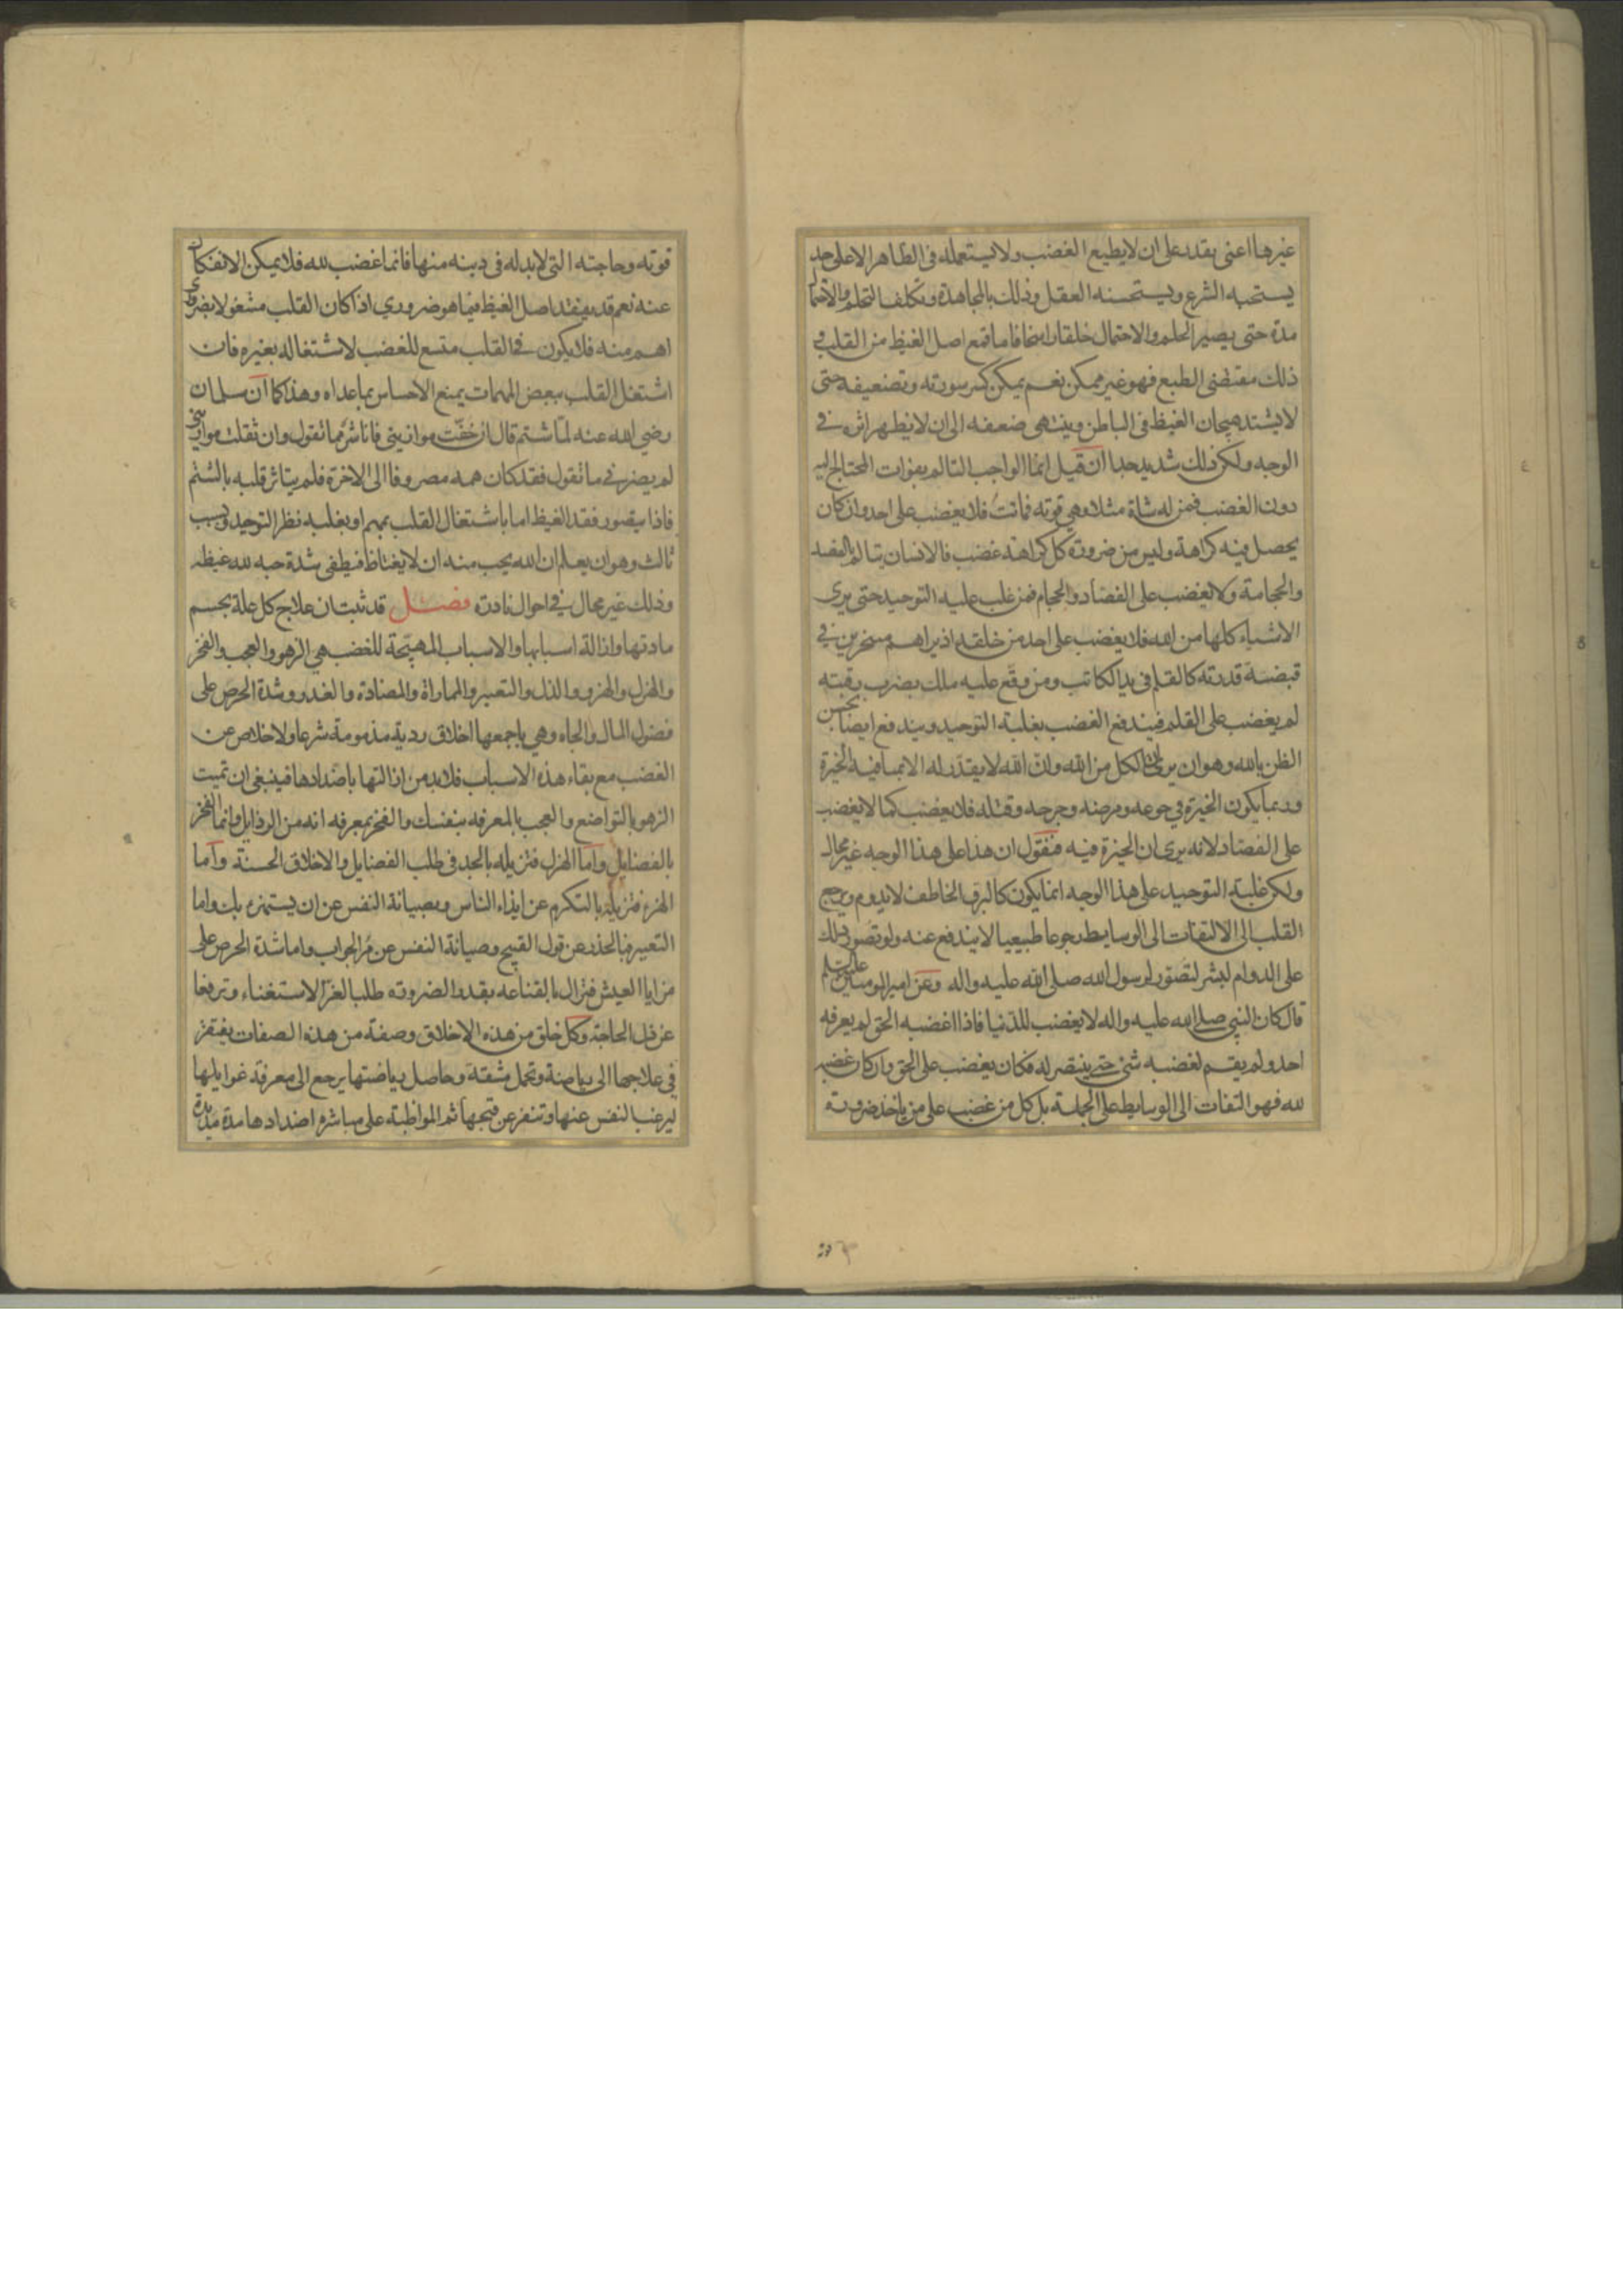 غيرها اعنى يقدر على ان لا يطيع الغضب ولا يستعمله فى الظاهر الا على حد
يستحبه الشرع ويستحسنه العقل وذلك بالمجاهدة وتكلف التحلم والاحتمال
مدة حتى يصير الحلم والاحتمال خلقا راسخا فاما قمع اصل الغيظ من القلب فى
ذلك مقتضى الطبع فهو غير ممكن نعم يمكن كسر سورته وتضعيفه حتى
لا يشتد هيجان الغيظ فى الباطن وينتهى ضعفه الى ان لا يظهر اثره فى
الوجه ولكن ذلك شديد جدا ان قيل انما الواجب التالم بفوات المحتاج اليه
دون الغضب فمن له شاة مثلا وهى قوته فماتت فلا يغضب على احد وان كان
يحصل فيه كراهة وليس من ضرورة كل كراهة غضب فالانسان يتالم بالفصد
والحجامة ولا يغضب على الفصاد والحجام فمن غلب عليه التوحيد حتى يرى
الاشياء كلها من الله فلا يغضب على احد من خلقه اذ يراهم مسخرين فى
قبضة قدرته كالقلم فى يد الكاتب ومن وقع عليه ملك بضرب رقبته
لم يغضب على القلم فيندفع الغضب بغلبة التوحيد ويندفع ايضا بحسن
الظن بالله وهو ان يرى ان الكل من الله وان الله لا يقدر له الا ما فيه الخيرة
وربما يكون الخيرة فى جوعه ومرضه وجرحه وقتله فلا يغضب كما لا يغضب
على الفصاد لانه يرى ان الخيرة فيه فنقول ان هذا على هذا الوجه غير محال
ولكن غلبة التوحيد على هذا الوجه انما يكون كالبرق الخاطف لا يدوم ويرجع
القلب الى الالتفات الى الوسايط رجوعا طبيعيا لا يندفع عنه ولو تصور ذلك
على الدوام لبشر لتصور لرسول الله صلى الله عليه واله وعن امير المومنين عليه السلم
قال كان النبى صلى الله عليه واله لا يغضب للدنيا فاذا اغضبه الحق لم يعرفه
احد ولم يقم لغضبه شئ حتى ينتصر له فكان يغضب على الحق وان كان غضبه
لله فهو التفات الى الوسايط على الجملة بل كل من غضب على من ياخذ ضرورة
قوته وحاجته التى لا بد له فى دينه منها فانما غضب لله فلا يمكن الانفكاك
عنه نعم قد يفقد اصل الغيظ فيما هو ضرورى اذا كان القلب مشغولا بضرورى
اهم منه فلا يكون فى القلب متسع للغضب لاشتغاله بغيره فان
اشتغل القلب ببعض المهمات يمنع الاحساس بما عداه وهذا كما ان سلمان
رضى الله عنه لما شتم قال ان خفت موازينى فانا شر مما تقول وان ثقلت موازينى
لم يضرنى ما تقول فقد كان همه مصروفا الى الاخرة فلم يتاثر قلبه بالشتم
فاذا يتصور فقد الغيظ اما باشتغال القلب بمهم او بغلبة نظر التوحيد وبسبب
ثالث وهو ان يعلم ان الله يحب منه ان لا يغتاظ فيطفى شدة حبه لله غيظه
وذلك غير محال فى احوال نادرة فصل قد ثبت ان علاج كل علة بحسم
مادتها وازالة اسبابها والاسباب المهيجة للغضب هى الزهو والعجب والفخر
والهزل والهزء والذل والتعيير والمماراة والمضادة والغدر وشدة الحرص على
فضول المال والجاه وهى باجمعها اخلاق ردية مذمومة شرعا ولا خلاص عن
الغضب مع بقاء هذه الاسباب فلا بد من ازالتها باضدادها فينبغى ان تميت
الزهو بالتواضع والعجب بالمعرفه بنفسك والفخر بمعرفه انه من الرذايل وانما الفخر
بالفضايل واما الهزل فتزيله بالجد فى طلب الفضايل والاخلاق الحسنة واما
الهزء فتزيله بالتكرم عن ايذاء الناس وبصيانة النفس عن ان يستهزء بك واما
التعيير فبالحذر عن قول القبيح وصيانة النفس عن مر الجواب واما شدة الحرص على
مزايا العيش فتزال بالقناعه بقدر الضرورة طلبا لعز الاستغناء وترفعا
عن ذل الحاجة وكل خلق من هذه الاخلاق وصفة من هذه الصفات يفتقر
فى علاجها الى رياضة وتحمل مشقة وحاصل رياضتها يرجع الى معرفة غوايلها
ليرغب النفس عنها وتنفر عن قبحها ثم المواظبة على مباشرة اضدادها مدة مديدة